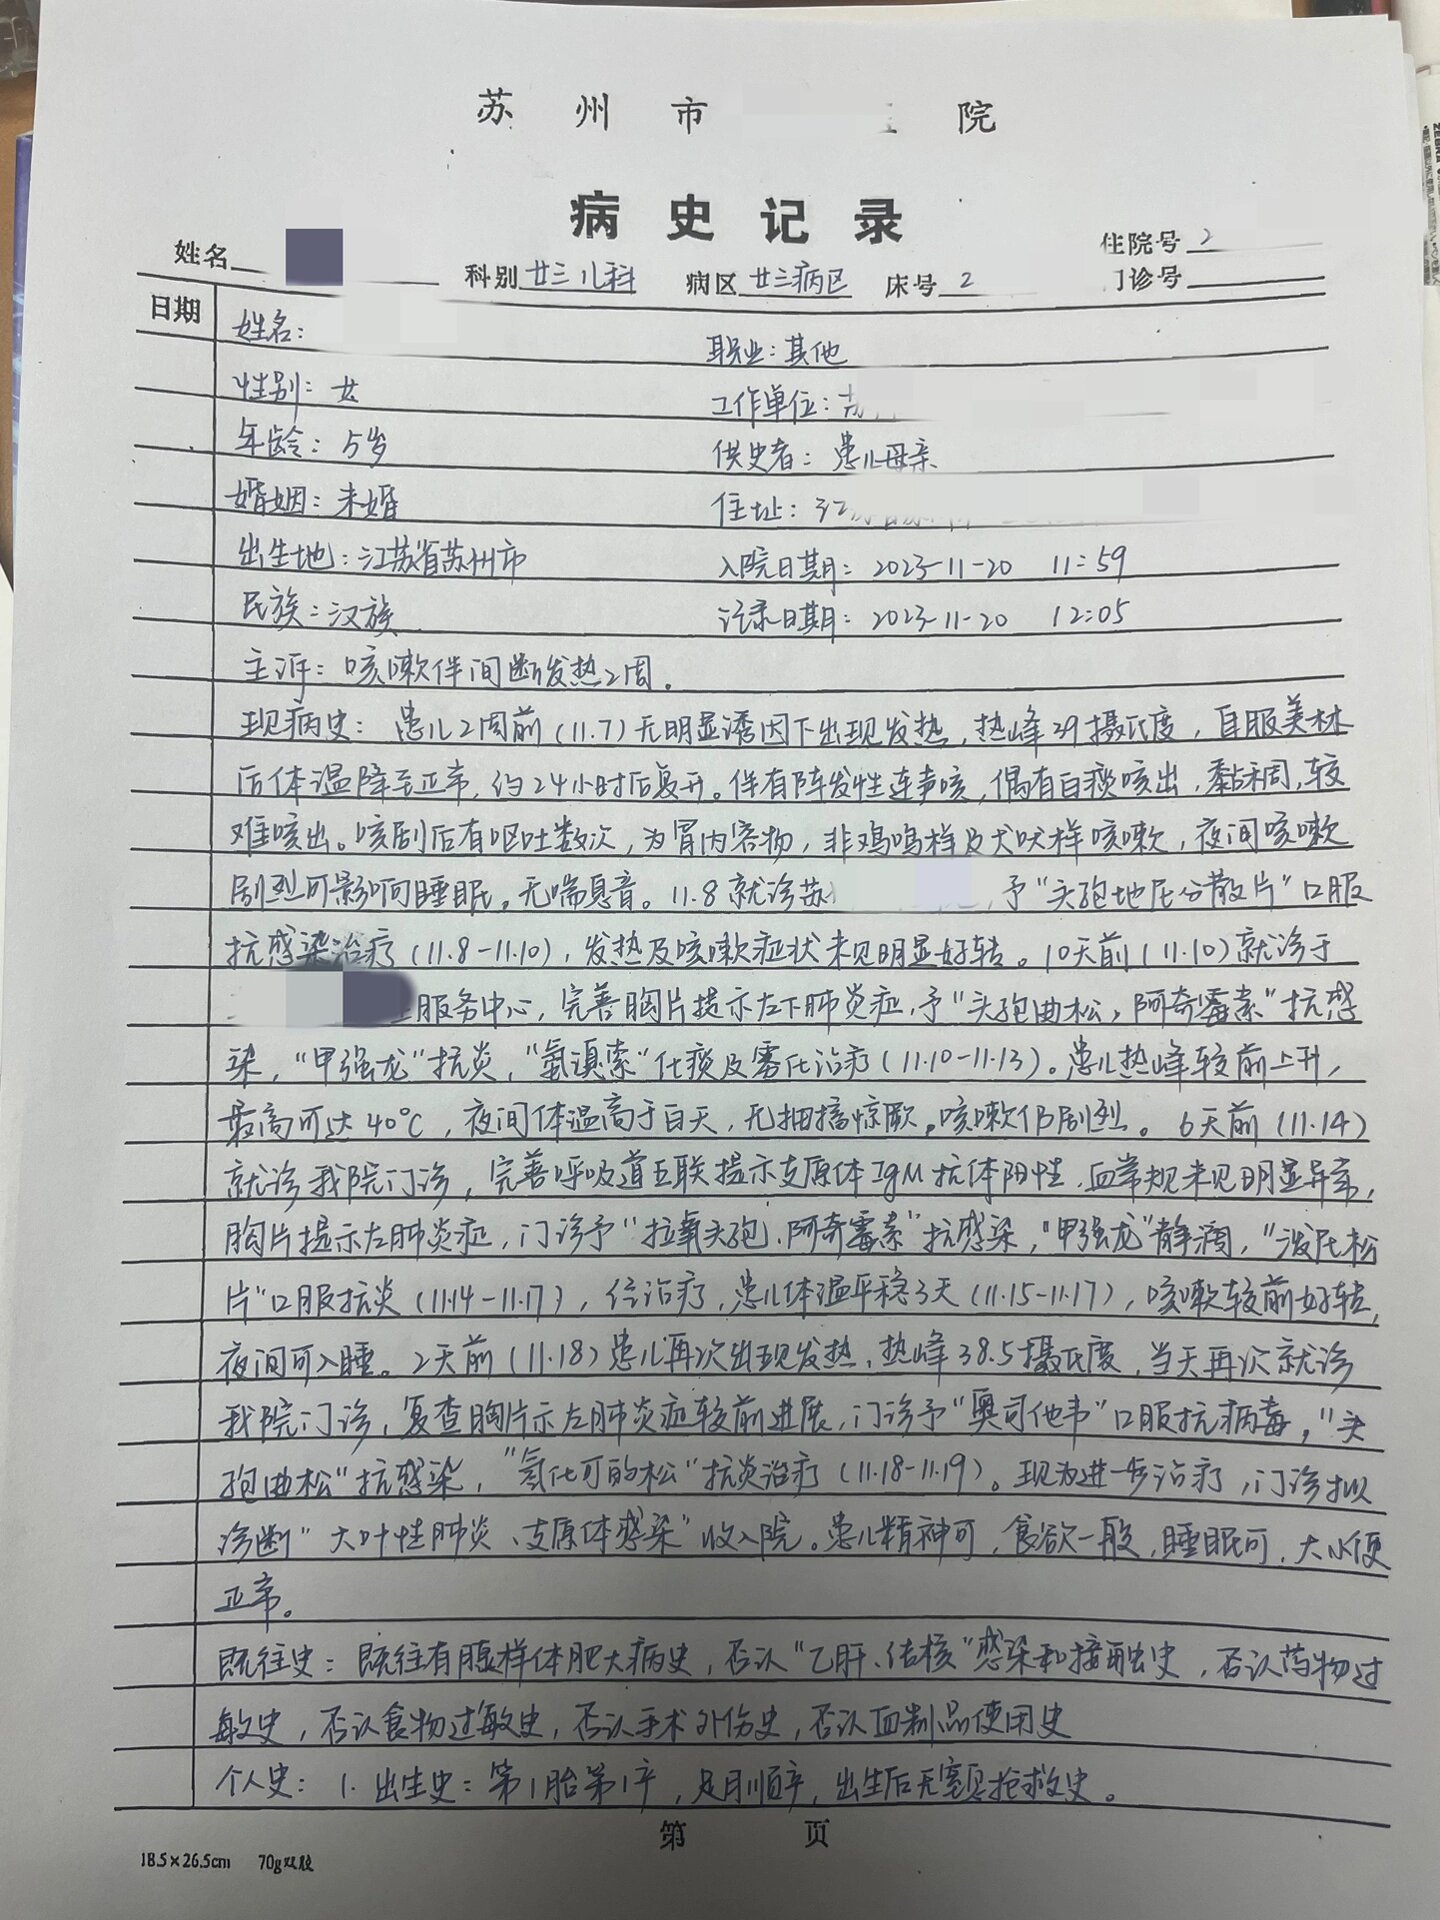 苏 州 市 院
病 史 记 录
姓名 科别 廿三儿科 病区 廿三病区 床号 2 住院号 2
门诊号
日期
姓名: 职业: 其他
性别: 女 工作单位: 苏
年龄: 5岁 供史者: 患儿母亲
婚姻: 未婚 住址: 江
出生地: 江苏省苏州市 入院日期: 2023-11-20 11:59
民族: 汉族 记录日期: 2023-11-20 12:05
主诉: 咳嗽伴间断发热2周.
现病史: 患儿2周前(11.7)无明显诱因下出现发热,热峰39摄氏度,自服美林
后体温降至正常,约24小时后复升。伴有阵发性连声咳,偶有白痰咳出,黏稠,较
难咳出。咳剧后有呕吐数次,为胃内容物,非鸡鸣样及犬吠样咳嗽,夜间咳嗽
剧烈可影响睡眠。无喘息音。11.8就诊苏 ,予"头孢地尼分散片"口服
抗感染治疗(11.8-11.10),发热及咳嗽症状未见明显好转。10天前(11.10)就诊于
服务中心,完善胸片提示左下肺炎症,予"头孢曲松、阿奇霉素"抗感
染,"甲强龙"抗炎,"氨溴索"化痰及雾化治疗(11.10-11.13)。患儿热峰较前上升,
最高可达40℃,夜间体温高于白天,无抽搐惊厥。咳嗽仍剧烈。6天前(11.14)
就诊我院门诊,完善呼吸道五联提示支原体IgM抗体阳性,血常规未见明显异常,
胸片提示左肺炎症,门诊予"拉氧头孢、阿奇霉素"抗感染,"甲强龙"静滴,"泼尼松
片"口服抗炎(11.14-11.17),经治疗,患儿体温平稳3天(11.15-11.17),咳嗽较前好转,
夜间可入睡。2天前(11.18)患儿再次出现发热,热峰38.5摄氏度,当天再次就诊
我院门诊,复查胸片示左肺炎症较前进展,门诊予"奥司他韦"口服抗病毒,"头
孢曲松"抗感染,"氢化可的松"抗炎治疗(11.18-11.19)。现为进一步治疗,门诊拟
诊断"大叶性肺炎、支原体感染"收入院。患儿精神可,食欲一般,睡眠可,大小便
正常。
既往史: 既往有腺样体肥大病史,否认"乙肝、结核"感染和接触史,否认药物过
敏史,否认食物过敏史,否认手术外伤史,否认血制品使用史
个人史: 1. 出生史: 第1胎第1产,足月顺产,出生后无窒息抢救史。
第 页
18.5×26.5cm 70g双胶